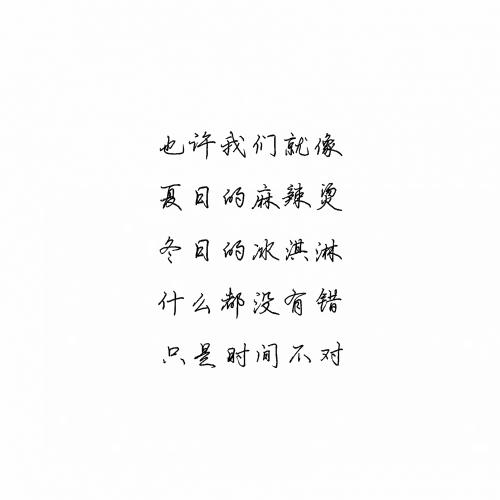 也许我们就像
夏日的麻辣烫
冬日的冰淇淋
什么都没有错
只是时间不对